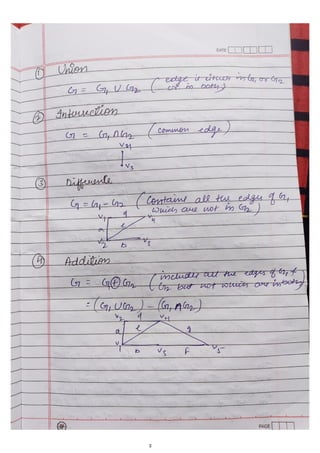 DATE
① Union
G = G₁ ∪ G₂ ( edge is either in G₁ or G₂
or in both)
② Intersection
G = G₁ ∩ G₂ (common edge)
V₄
V₅
③ Difference
G = G₁ - G₂ (Contains all the edges of G₁,
which are not in G₂)
V₁ d V₄
a e
V₂ b V₅
④ Addition
G = G₁ ⊕ G₂ (includes all the edges of G₁ &
G₂ but not which are in both)
= (G₁ ∪ G₂) - (G₁ ∩ G₂)
V₂ d V₄
a e g
V₁ b V₅ F V₅
PAGE